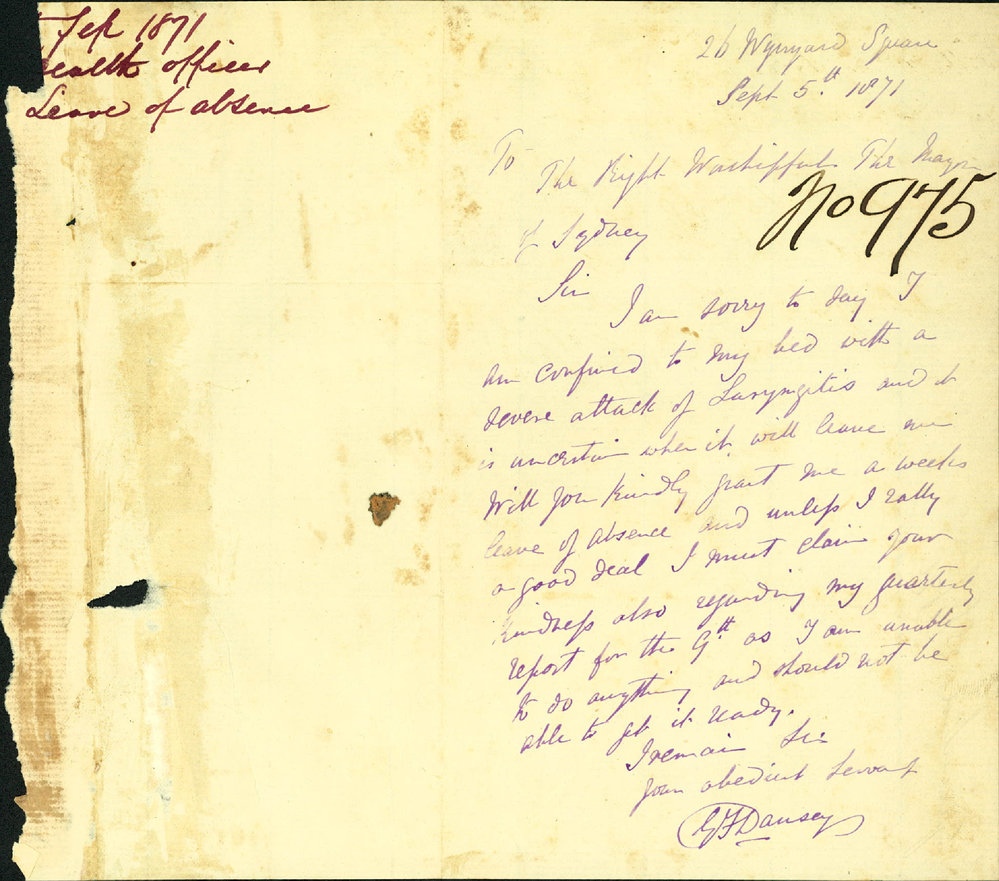 Sep 1871
ealth officer
Leave of absence
26 Wynyard Square
Sept 5th 1871
To
The Right Worshipful The Mayor
No 975
of Sydney
Sir
I am sorry to say I
am confined to my bed with a
severe attack of Laryngitis and it
is uncertain when it will leave me
Will you kindly grant me a weeks
leave of absence and unless I rally
a good deal I must claim your
kindness also regarding my quarterly
report for the 9th as I am unable
to do anything and should not be
able to get it ready.
I remain Sir
Your obedient Servant
G F Dansey